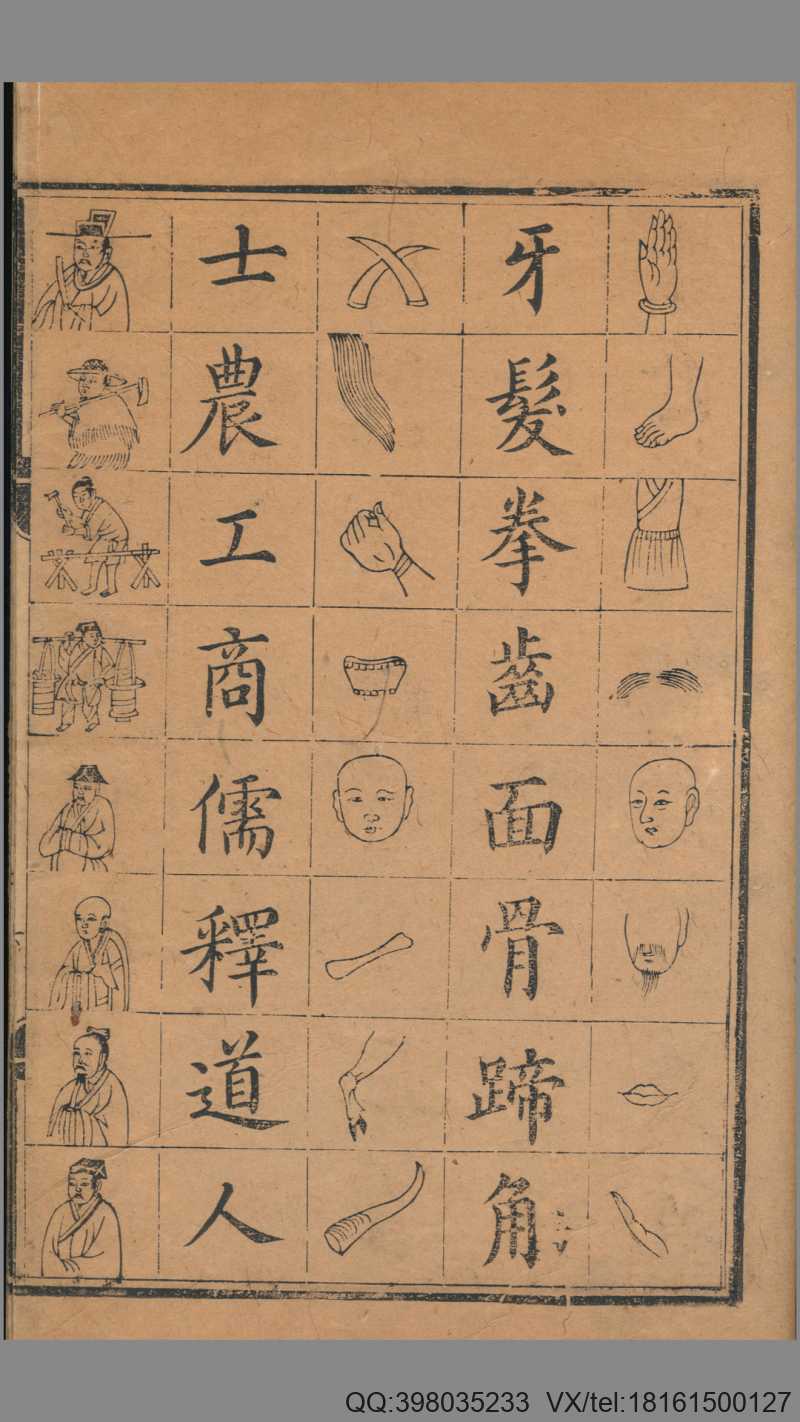 牙髮拳齒面骨蹄角
士農工商儒釋道人
QQ:398035233 VX/tel:18161500127